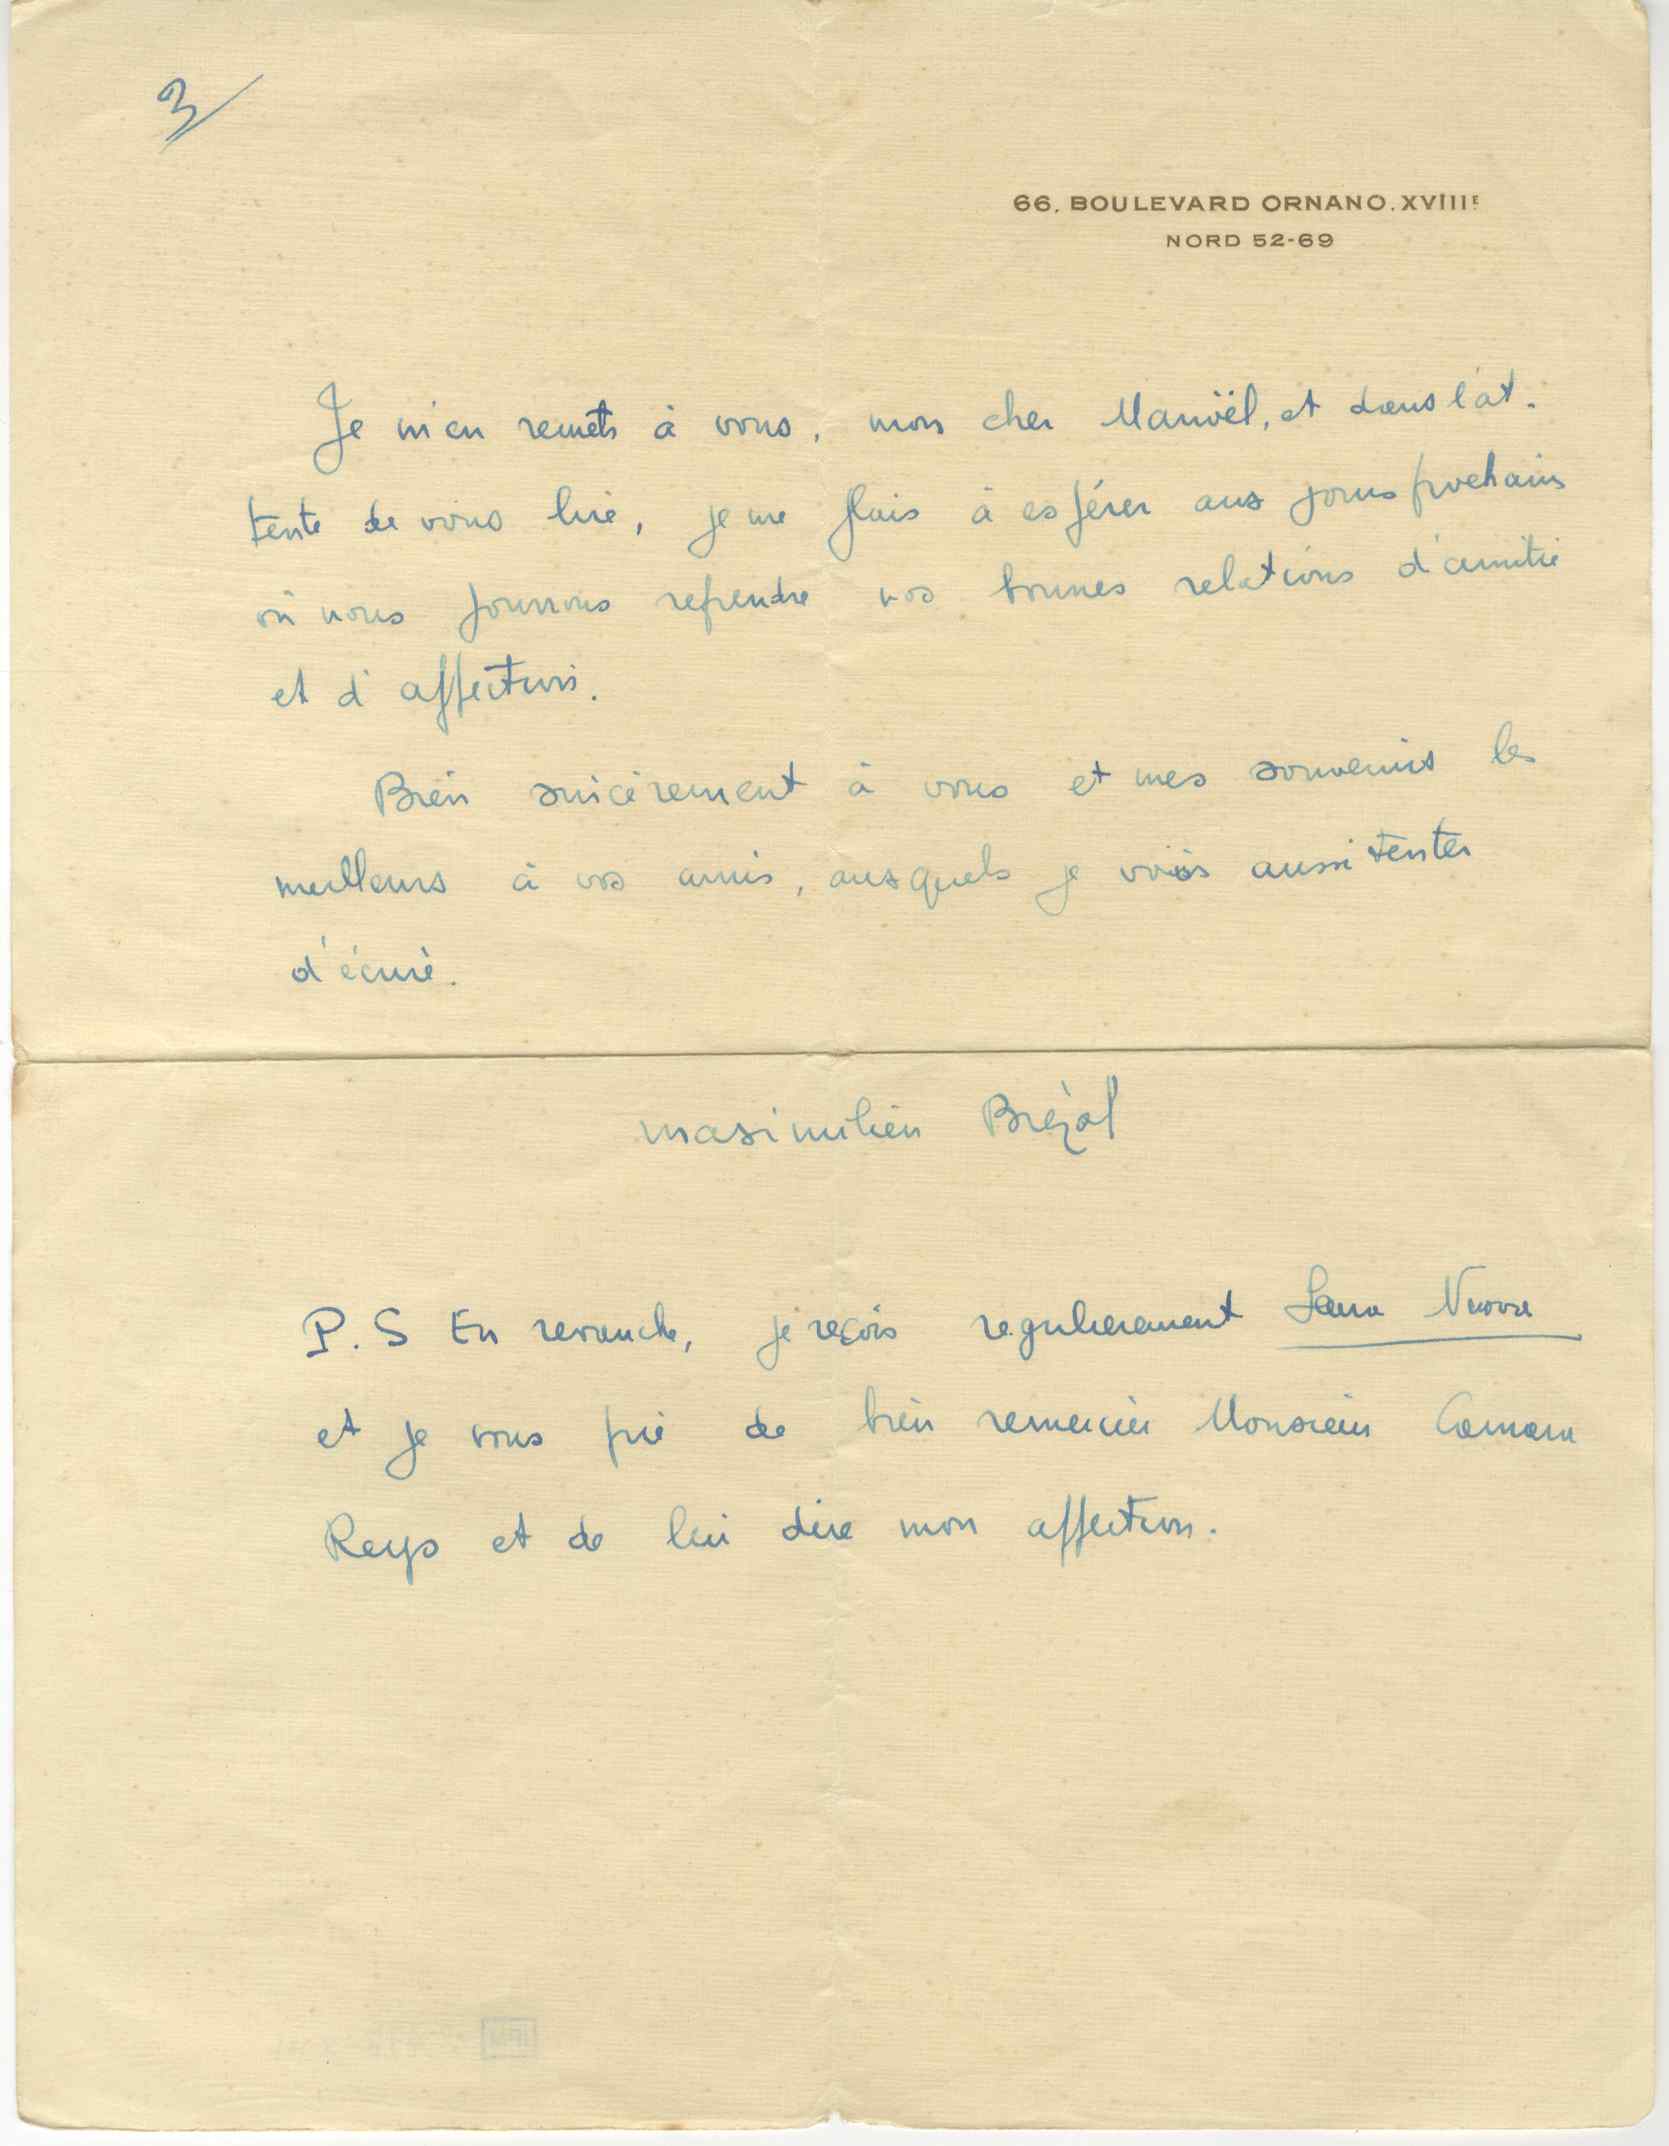 3
66. BOULEVARD ORNANO. XVIIIE
NORD 52-69
Je m'en remets à vous, mon cher Manoël, et dans l'at-
tente de vous lire, je me plais à espérer aux jours prochains
où nous pourrons reprendre nos bonnes relations d'amitié
et d'affection.
Bien sincèrement à vous et mes souvenirs les
meilleurs à vos amis, auxquels je vais aussi tenter
d'écrire.
Maximilien
P.S En revanche, je reçois regulierement Seara Nuova
et je vous prie de bien remercier Monsieur Camara
Reys et de lui dire mon affection.